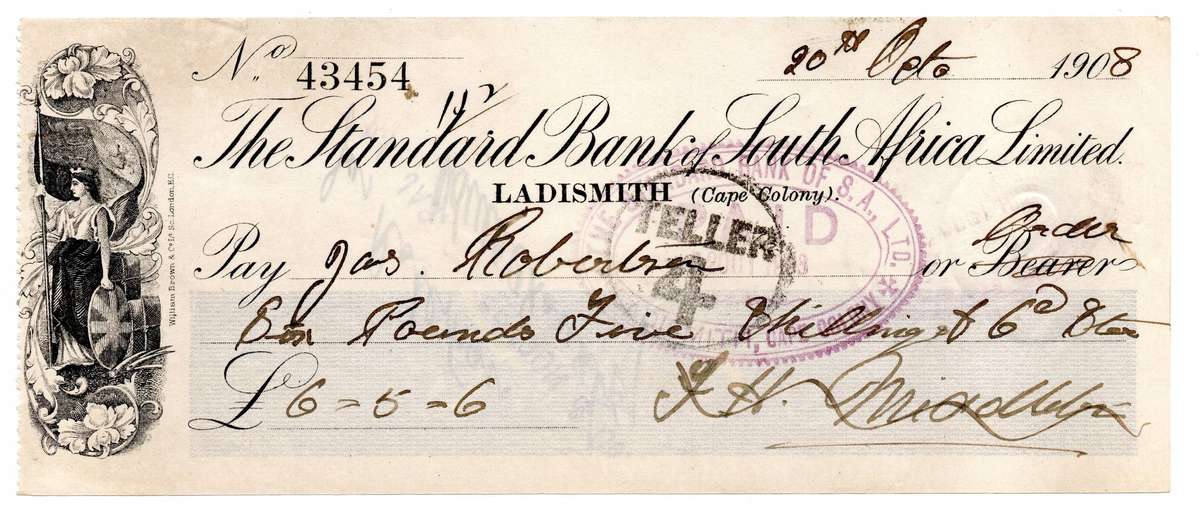 No 43454
20TH Octo 1908
The Standard Bank of South Africa Limited.
LADISMITH (Cape Colony).
Pay Jas. Robertson or Bearer Order
Six Pounds Five Shillings & 6d Ster
£ 6-5-6
J. H. Middleton
TELLER
4
BANK OF S.A., LTD.
William Brown & Co Ld Sc. London, E.C.